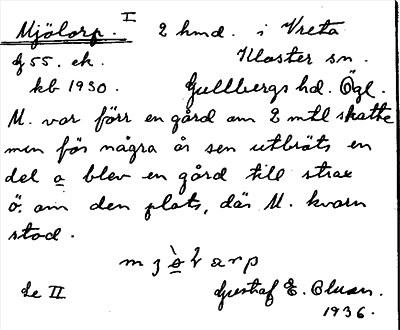 Mjölorp. I 2 hmd. i Vreta
g 55. ek. Kloster sn.
kb 1930. Gullbergs hd. Ögl.
M. var förr en gård om 2 mtl skatte
men för några år sen utbröts en
del o blev en gård till strax
ö. om den plats, där M. kvarn
stod.
Se II Gustaf E. Olsson.
1936.